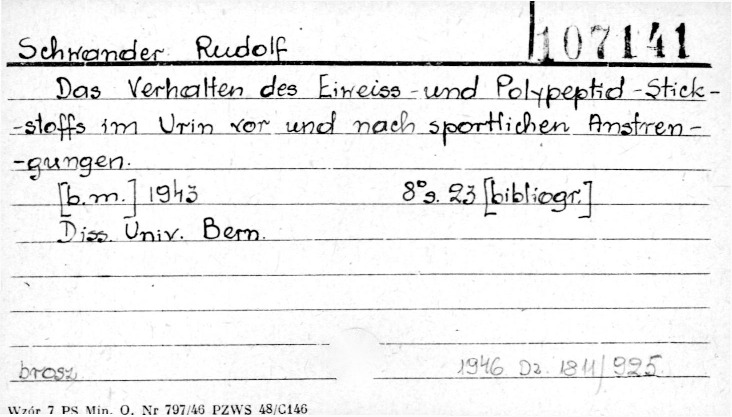 Schwander Rudolf 107141
Das Verhalten des Eiweiss - und Polypeptid - Stick-
-stoffs im Urin vor und nach sportlichen Anstren-
-gungen.
[b.m.] 1943 8° s. 23 [bibliogr.]
Diss. Univ. Bern.
brosz 1946 Dz. 1811/925
Wzór 7 PS Min. O. Nr 797/46 PZWS 48/C146